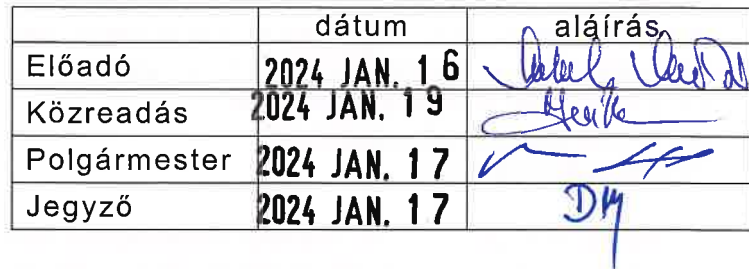 dátum aláírás
Előadó 2024 JAN. 16
Közreadás 2024 JAN. 19
Polgármester 2024 JAN. 17
Jegyző 2024 JAN. 17